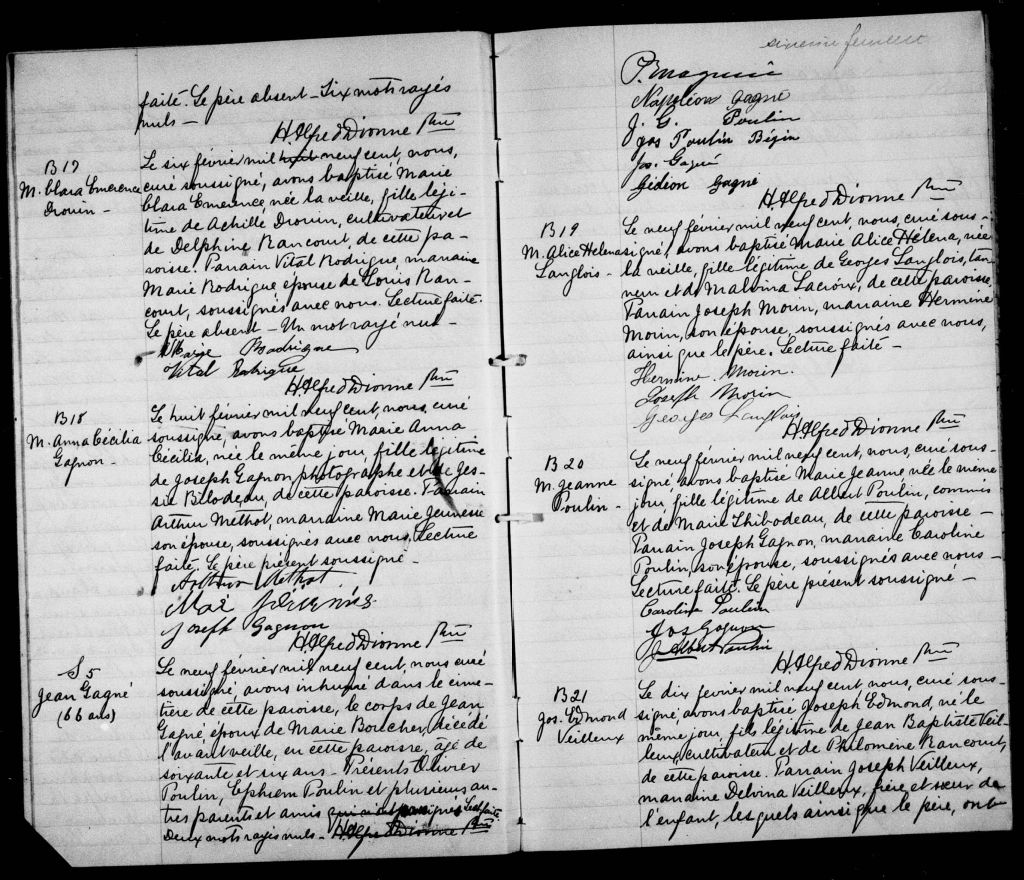 faite. Le père absent - Six mots rayés
nuls -
H. Alfred Dionne Ptre
B 17
M. Clara Emerence
Drouin -
Le six février mil huit neuf cent, nous,
curé soussigné, avons baptisé Marie
Clara Emerence, née la veille, fille légi-
time de Achille Drouin, cultivateur et
de Delphine Rancourt, de cette pa-
roisse. Parrain Vital Rodrigue, marraine
Marie Rodrigue épouse de Louis Ran-
court, soussignés avec nous. Lecture faite.
Le père absent - Un mot rayé nul -
Marie Rodrigue
Vital Rodrigue
H. Alfred Dionne Ptre
B 18
M. Anna Cécilia
Gagnon -
Le huit février mil neuf cent, nous, curé
soussigné, avons baptisé Marie Anna
Cécilia, née le même jour, fille légitime
de Joseph Gagnon, photographe et de Jes-
sie Bilodeau, de cette paroisse. Parrain
Arthur Méthot, marraine Marie Jeunesse
son épouse, soussignés avec nous, Lecture
faite. Le père présent soussigné -
Arthur Méthot
Joseph Gagnon
H. Alfred Dionne Ptre
S 5
Jean Gagné
(66 ans)
Le neuf février mil neuf cent, nous curé
soussigné, avons inhumé dans le cime-
tière de cette paroisse, le corps de Jean
Gagné, époux de Marie Boucher, décédé
l'avant veille, en cette paroisse, âgé de
soixante et six ans - Présents Olivier
Poulin, Ephrem Poulin et plusieurs au-
tres parents et amis qui ont signé. Lect. faite.
Deux mots rayés nuls - H. Alfred Dionne Ptre
sixième feuillet
Napoléon Gagné
J. G. Poulin
Jos Poulin Bégin
Jos. Gagné
Gédéon Gagné
H. Alfred Dionne Ptre
B 19
M. Alice Helena
Langlois -
Le neuf février mil neuf cent, nous, curé sous-
signé, avons baptisé Marie Alice Héléna, née
la veille, fille légitime de Georges Langlois, tan-
neur et de Malvina Lacroix, de cette paroisse,
Parrain Joseph Morin, marraine Hermine
Morin, son épouse, soussignés avec nous,
ainsi que le père. Lecture faite -
Hermine Morin.
Joseph Morin
Georges Langlois
H. Alfred Dionne Ptre
B 20
M. Jeanne
Poulin -
Le neuf février mil neuf cent, nous, curé sous-
signé, avons baptisé Marie Jeanne née le même
jour, fille légitime de Albert Poulin, commis
et de Marie Thibodeau, de cette paroisse -
Parrain Joseph Gagnon, marraine Caroline
Poulin, son épouse, soussignés avec nous -
Lecture faite. Le père présent soussigné -
Caroline Poulin
Jos Gagnon
J Albert Poulin
H. Alfred Dionne Ptre
B 21
Jos. Edmond
Veilleux
Le dix février mil neuf cent, nous, curé sous-
signé, avons baptisé Joseph Edmond, né le
même jour, fils légitime de Jean Baptiste Veil-
leux, cultivateur et de Philomène Rancourt,
de cette paroisse. Parrain Joseph Veilleux,
marraine Delvina Veilleux, frère et sœur de
l'enfant, lesquels ainsi que le père, ont